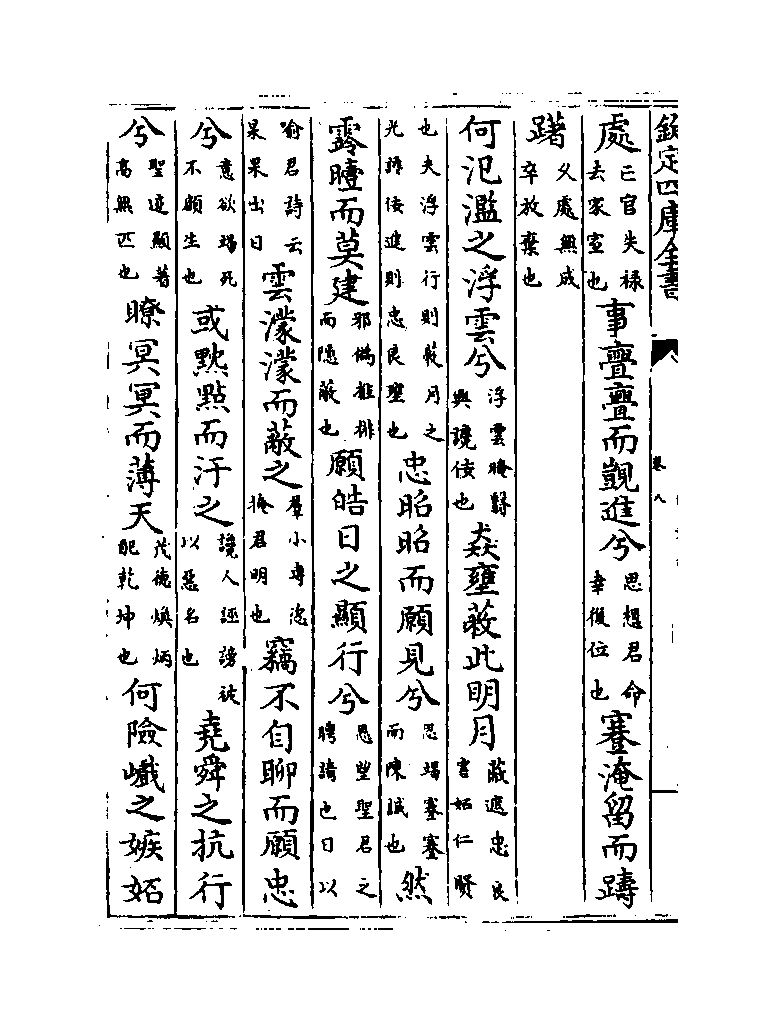 欽定四庫全書 卷八
處亡官失祿去家室也事亹亹而覬進兮思想君命幸復位也蹇淹留而躊
躇久處無成卒放棄也
何氾濫之浮雲兮浮雲晻翳興讒佞也猋壅蔽此明月蔽遮忠良害妬仁賢
也夫浮雲行則蔽月之光讒佞進則忠良壅也忠昭昭而願見兮思竭蹇蹇而陳誠也然
霠曀而莫建邪偽推排而隱蔽也願皓日之顯行兮思望聖君之聘請也日以
喻君詩云杲杲出日雲濛濛而蔽之羣小專恣掩君明也竊不自聊而願忠
兮意欲竭死不顧生也或黕點而汙之讒人誣謗被以惡名也堯舜之抗行
兮聖迹顯著高無匹也瞭冥冥而薄天茂德煥炳配乾坤也何險巇之嫉妬